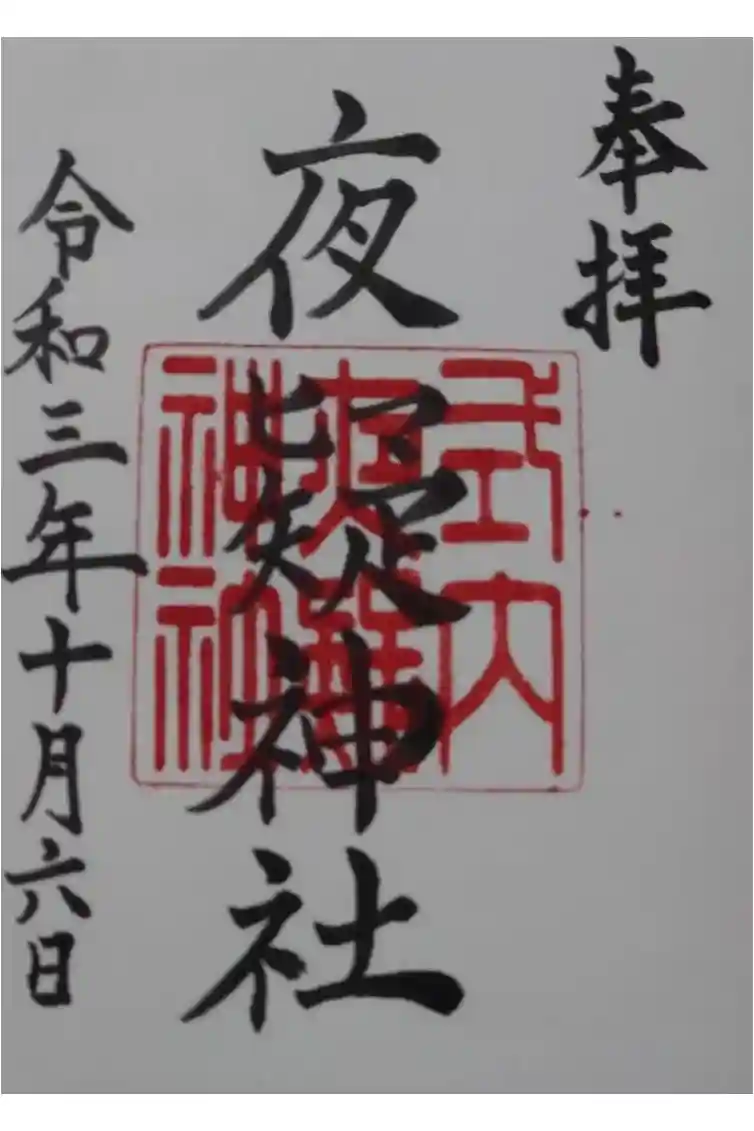 奉拝
夜疑神社
令和三年十月六日
式内
神社